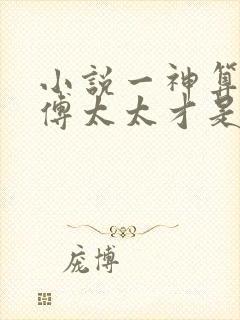 小說一神算
傅太太才是
庞博